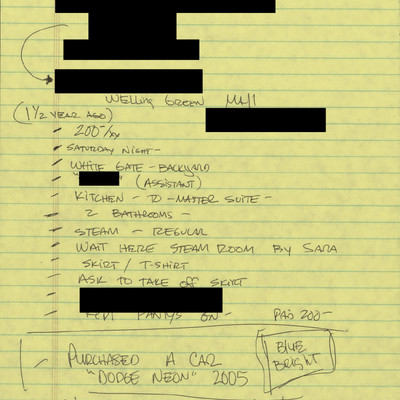 Welling Green Mall
(1 1/2 year ago)
200-/xx
Saturday night-
White Gate - Backyard
" " (Assistant)
Kitchen - to - Master Suite -
2 Bathrooms -
Steam - Regular
Wait here Steam Room by Sara
Skirt / T-shirt
Ask to take off skirt
Kept Pantys on - Paid 200-
Purchased a car
"Dodge Neon" 2005
Blue
Bright